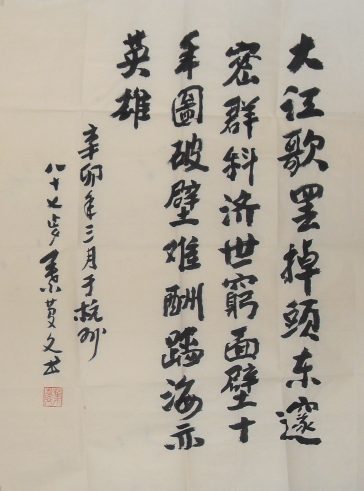 大江歌罢掉頭东邃
密群科济世窮面壁十
年圖破壁难酬蹈海亦
英雄
辛卯年三月于杭州
八十七岁文书